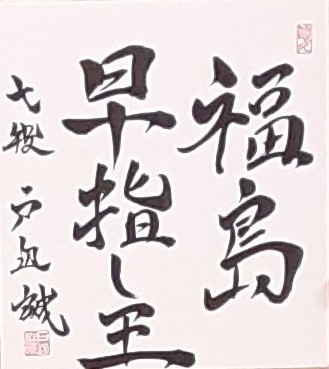 福島
早指し王
七段 戸辺誠